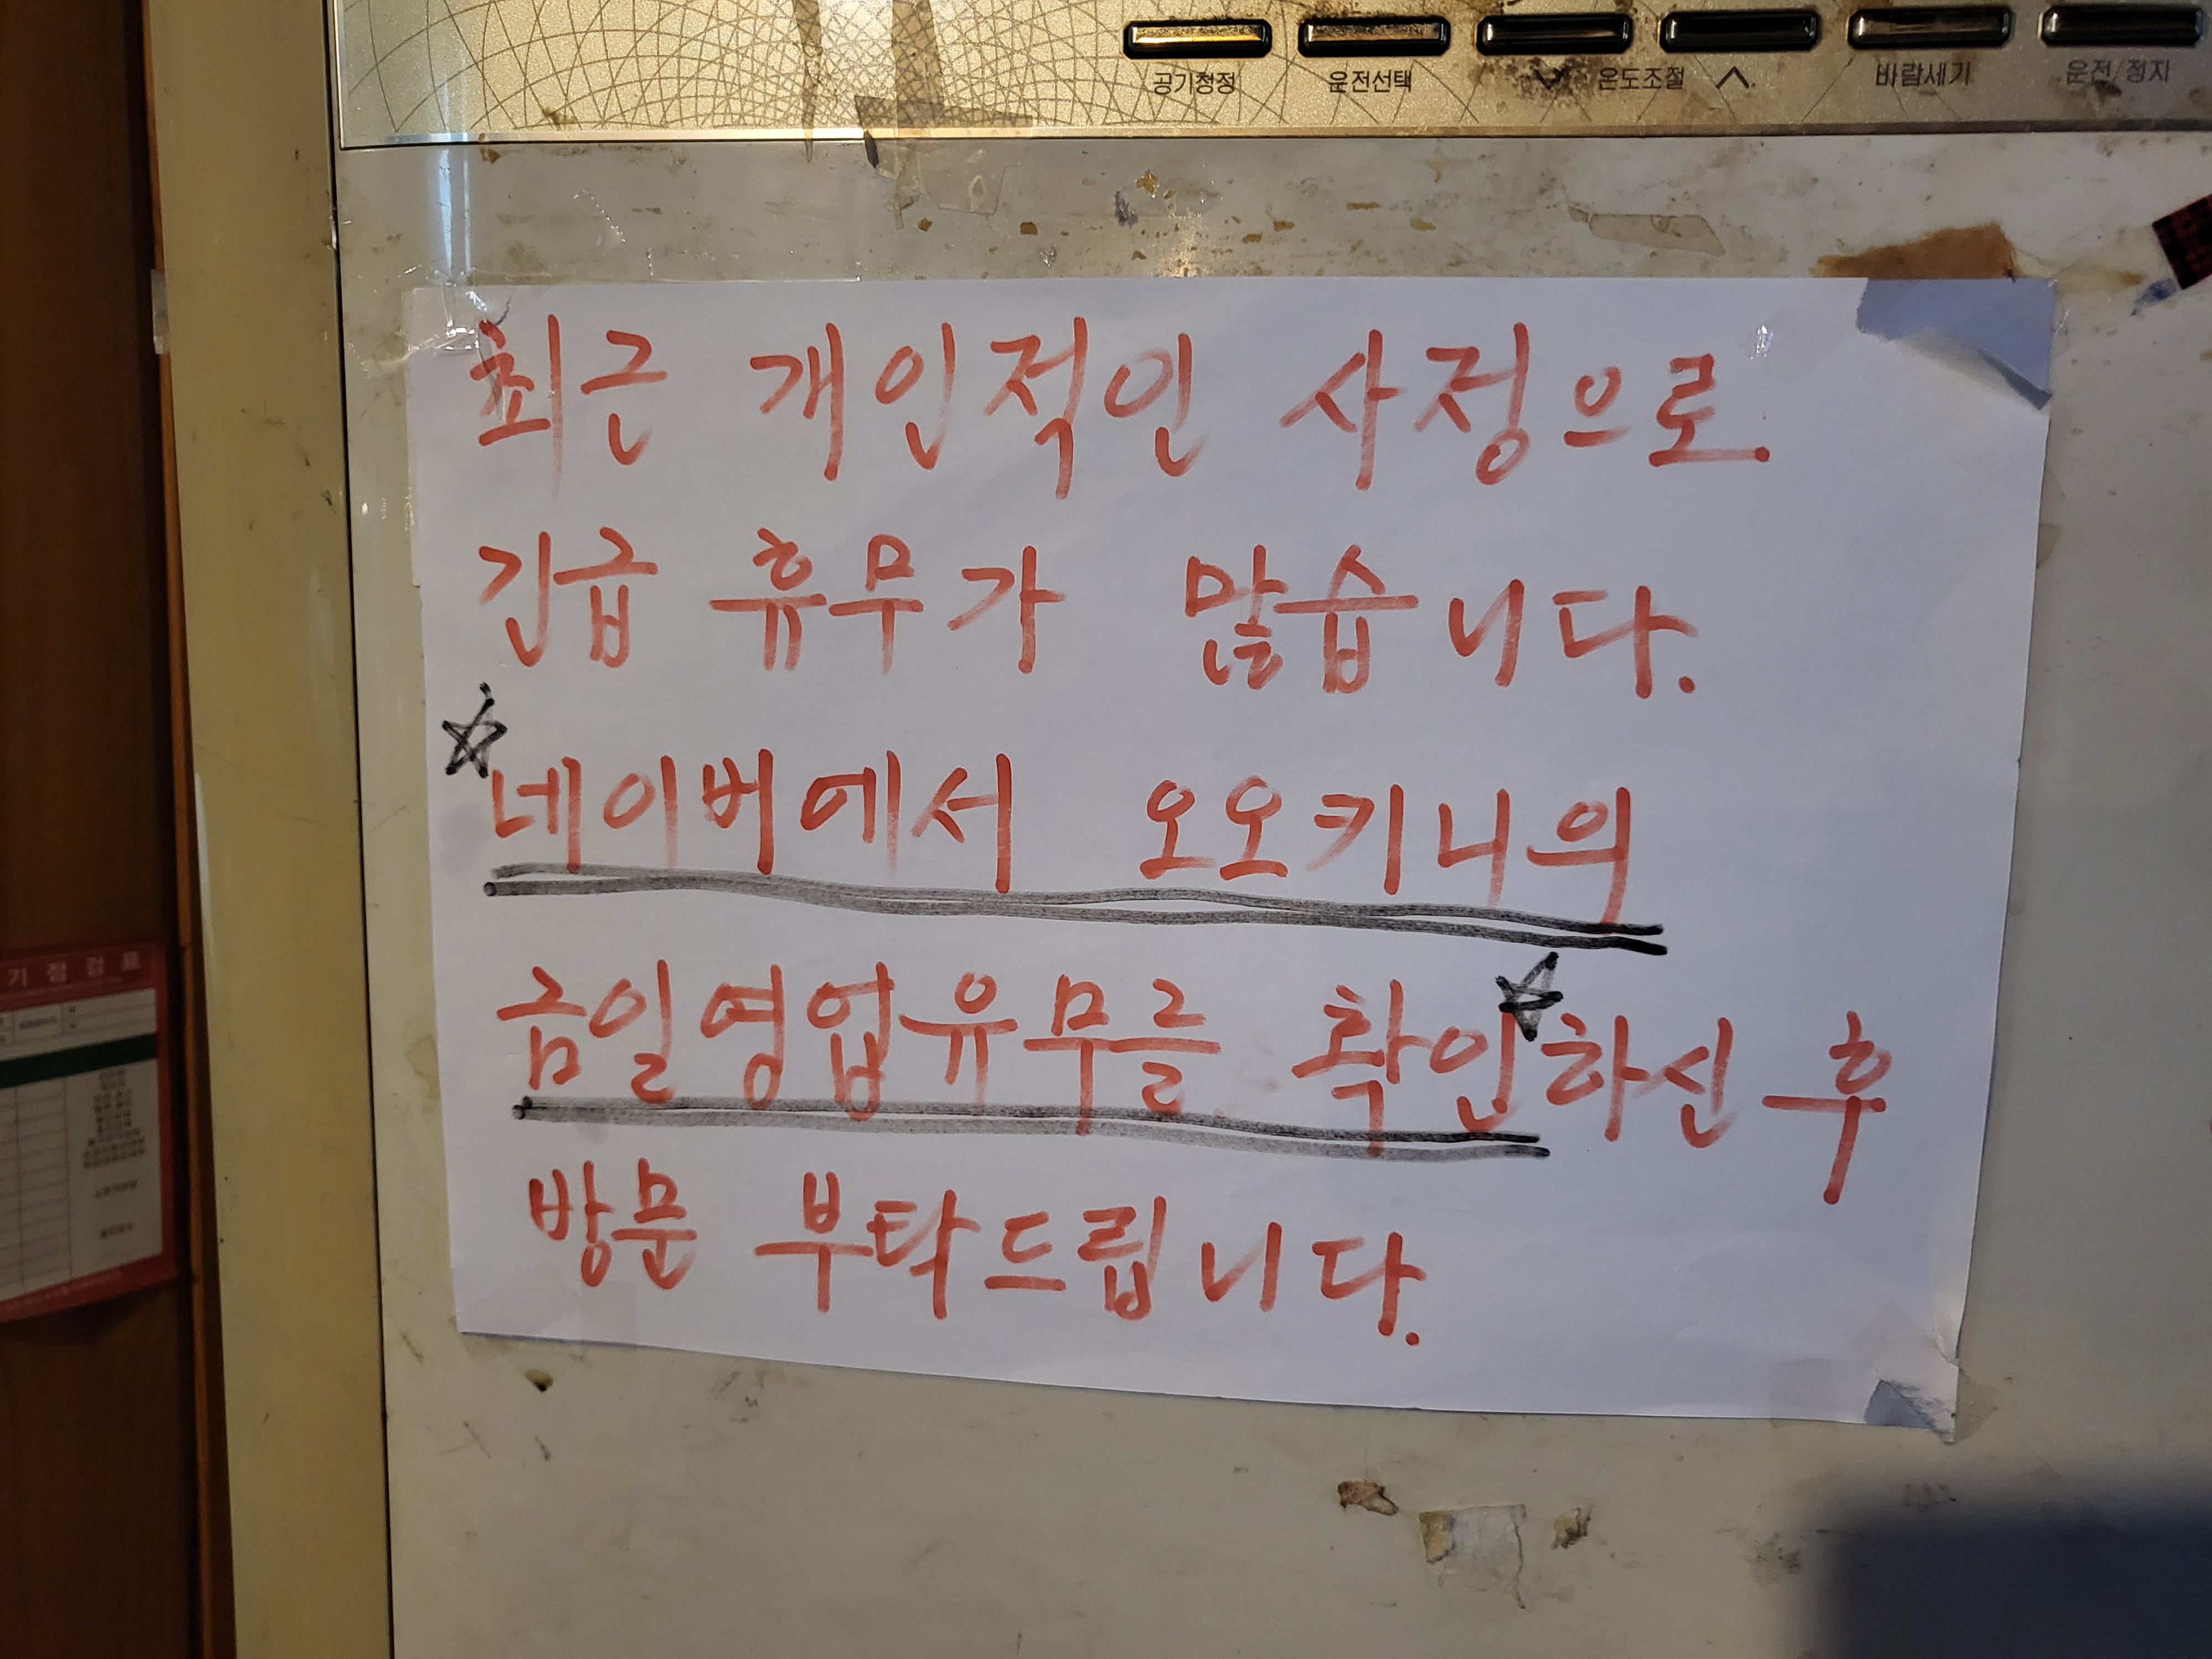 공기청정 운전선택 온도조절 바람세기 운전/정지
최근 개인적인 사정으로
긴급 휴무가 많습니다.
네이버에서 오오키니의
금일영업유무를 확인하신 후
방문 부탁드립니다.
기점검표